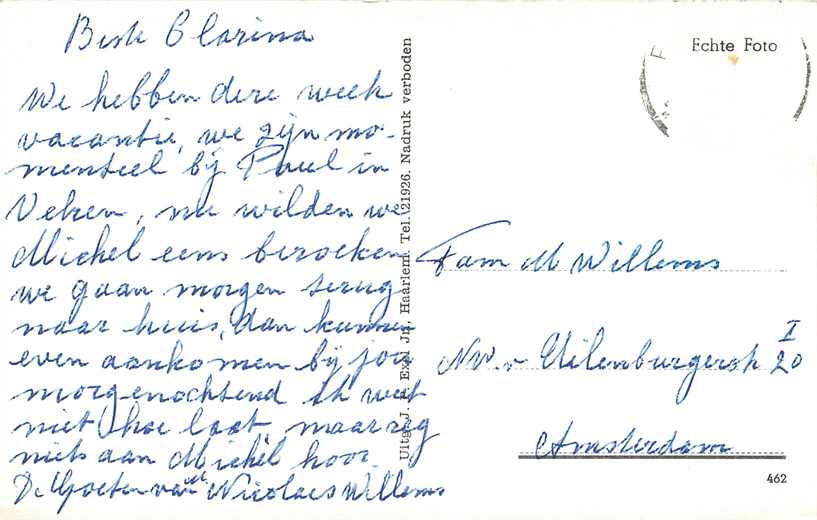 Beste Clarina
We hebben deze week
vacantie, we zijn mo-
menteel bij Paul in
Velzen, nu wilden we
Michel eens bezoeken
we gaan morgen terug
naar huis, dan kunnen
even aankomen bij jou
morgenochtend ik weet
niet hoe laat, maar zeg
niets aan Michel hoor.
De Groeten van Nicolaas Willems
Uitg. J. Haarlem. Tel. 21926. Nadruk verboden
Echte Foto
Fam M Willems
Nw. v Uilenburgerstr 20 I
Amsterdam
462